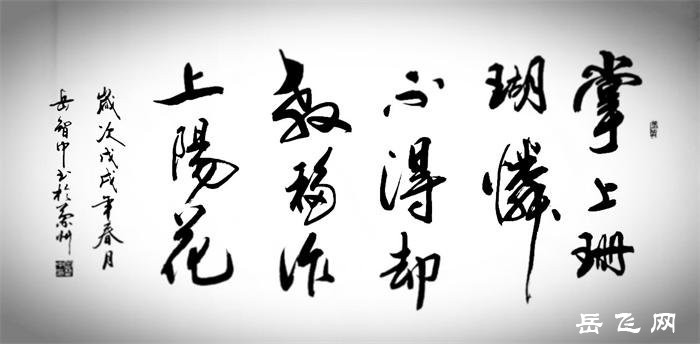 掌上珊
瑚憐
不得却
教移作
上陽花
歲次戊戌年春月
岳智中书於
岳飞网